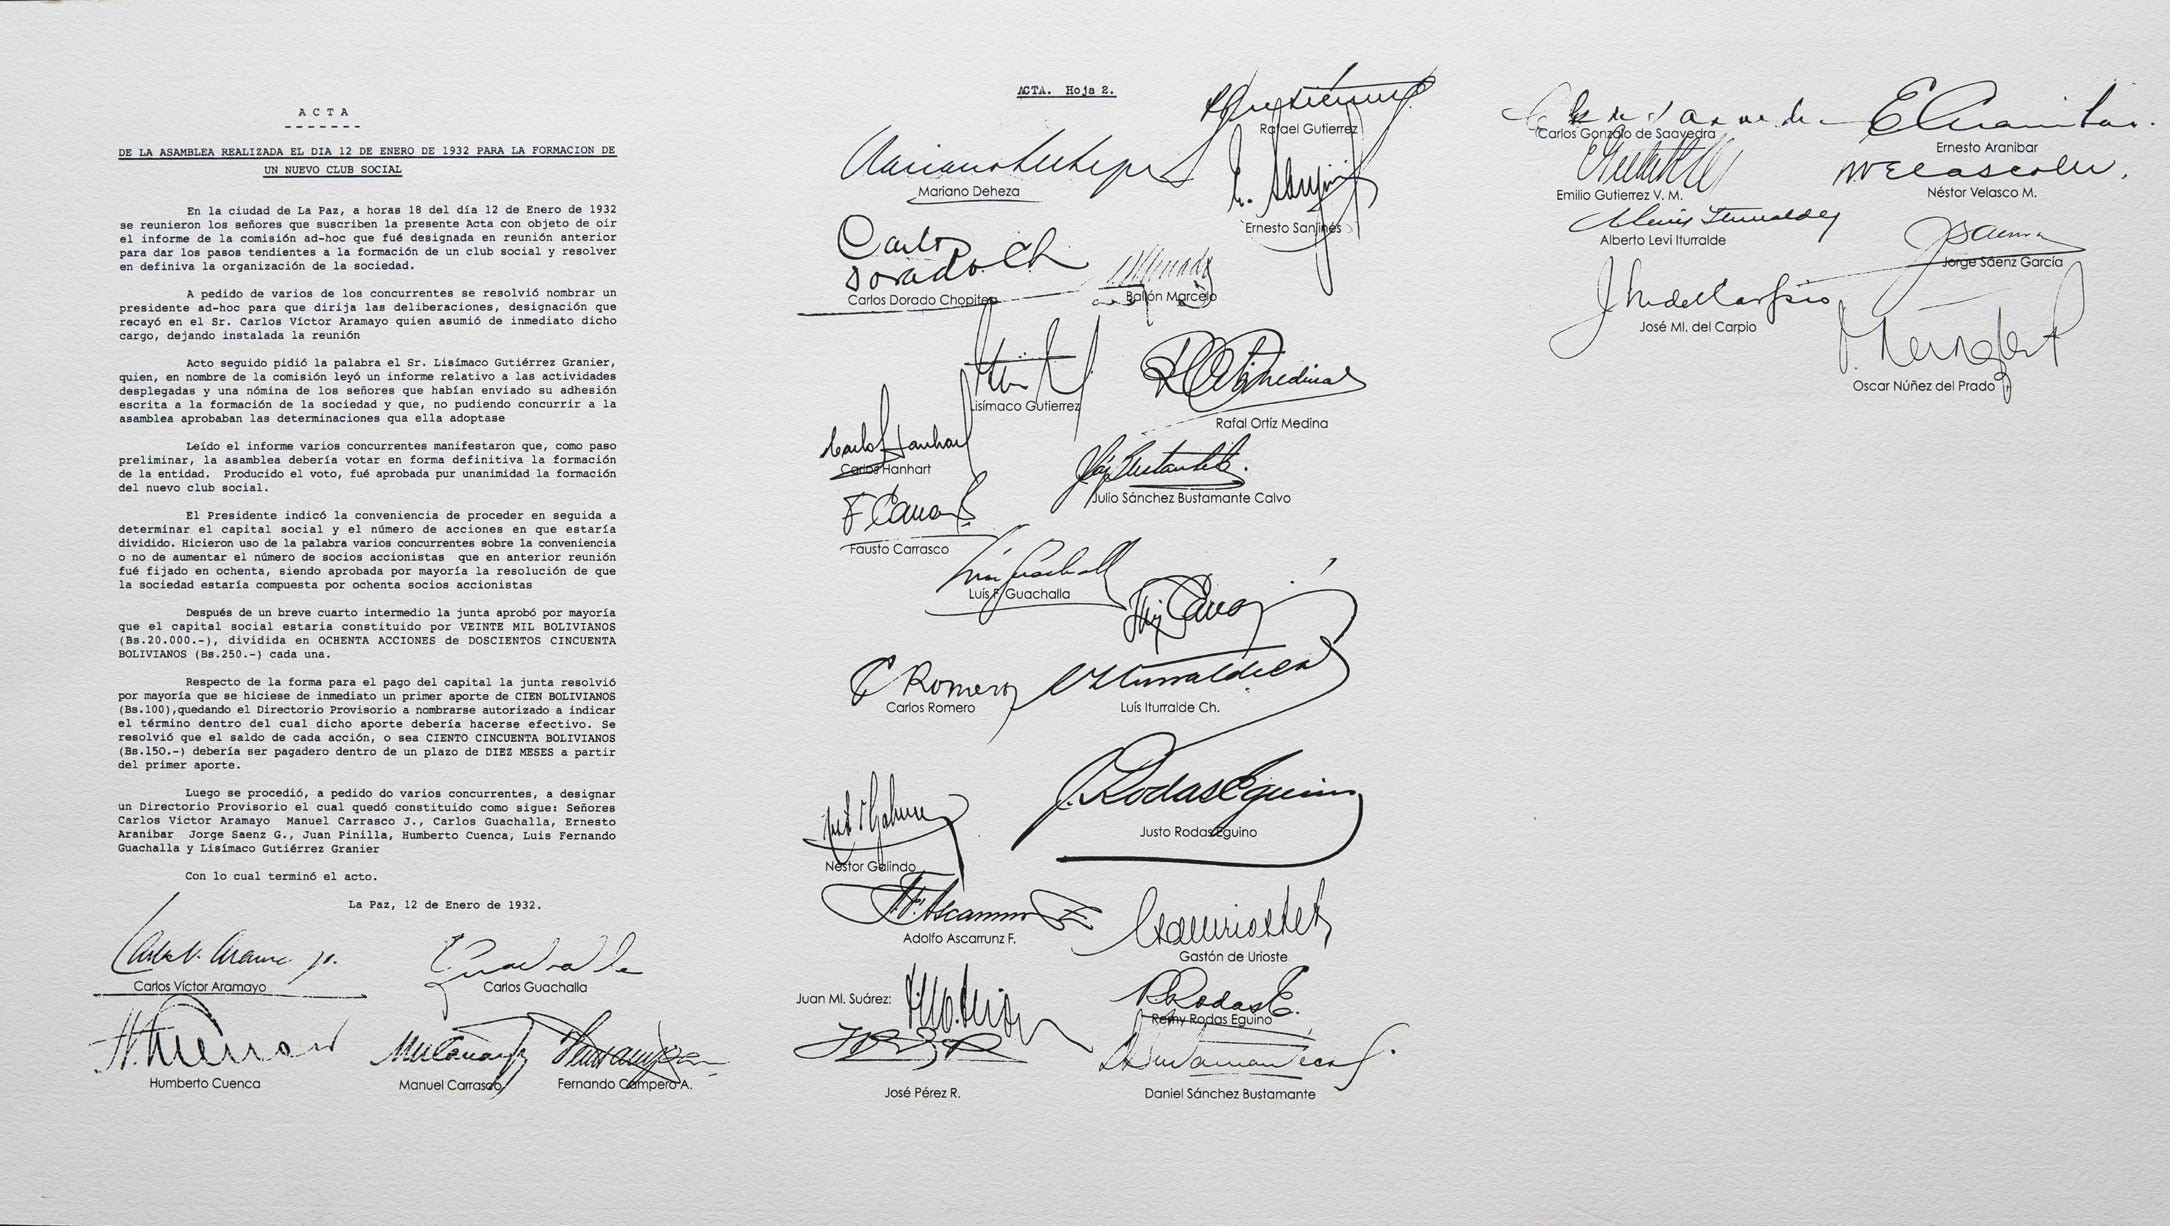 A C T A
DE LA ASAMBLEA REALIZADA EL DIA 12 DE ENERO DE 1932 PARA LA FORMACION DE
UN NUEVO CLUB SOCIAL
En la ciudad de La Paz, a horas 18 del día 12 de Enero de 1932
se reunieron los señores que suscriben la presente Acta con objeto de oír
el informe de la comisión ad-hoc que fué designada en reunión anterior
para dar los pasos tendientes a la formación de un club social y resolver
en definiva la organización de la sociedad.
A pedido de varios de los concurrentes se resolvió nombrar un
presidente ad-hoc para que dirija las deliberaciones, designación que
recayó en el Sr. Carlos Víctor Aramayo quien asumió de inmediato dicho
cargo, dejando instalada la reunión
Acto seguido pidió la palabra el Sr. Lisímaco Gutiérrez Granier,
quien, en nombre de la comisión leyó un informe relativo a las actividades
desplegadas y una nómina de los señores que habían enviado su adhesión
escrita a la formación de la sociedad y que, no pudiendo concurrir a la
asamblea aprobaban las determinaciones qua ella adoptase
Leído el informe varios concurrentes manifestaron que, como paso
preliminar, la asamblea debería votar en forma definitiva la formación
de la entidad. Producido el voto, fué aprobada pur unanimidad la formación
del nuevo club social.
El Presidente indicó la conveniencia de proceder en seguida a
determinar el capital social y el número de acciones en que estaría
dividido. Hicieron uso de la palabra varios concurrentes sobre la conveniencia
o no de aumentar el número de socios accionistas que en anterior reunión
fué fijado en ochenta, siendo aprobada por mayoría la resolución de que
la sociedad estaría compuesta por ochenta socios accionistas
Después de un breve cuarto intermedio la junta aprobó por mayoría
que el capital social estaria constituido por VEINTE MIL BOLIVIANOS
(Bs.20.000.-), dividida en OCHENTA ACCIONES de DOSCIENTOS CINCUENTA
BOLIVIANOS (Bs.250.-) cada una.
Respecto de la forma para el pago del capital la junta resolvió
por mayoría que se hiciese de inmediato un primer aporte de CIEN BOLIVIANOS
(Bs.100),quedando el Directorio Provisorio a nombrarse autorizado a indicar
el término dentro del cual dicho aporte debería hacerse efectivo. Se
resolvió que el saldo de cada acción, o sea CIENTO CINCUENTA BOLIVIANOS
(Bs.150.-) debería ser pagadero dentro de un plazo de DIEZ MESES a partir
del primer aporte.
Luego se procedió, a pedido do varios concurrentes, a designar
un Directorio Provisorio el cual quedó constituido como sigue: Señores
Carlos Victor Aramayo Manuel Carrasco J., Carlos Guachalla, Ernesto
Aranibar Jorge Saenz G., Juan Pinilla, Humberto Cuenca, Luis Fernando
Guachalla y Lisímaco Gutiérrez Granier
Con lo cual terminó el acto.
La Paz, 12 de Enero de 1932.
Carlos Víctor Aramayo
Carlos Guachalla
Humberto Cuenca
Manuel Carrasco
Fernando Campero A.
ACTA. Hoja 2.
Rafael Gutierrez
Mariano Deheza
Ernesto Sanjinés
Carlos
Dorado Ch
Carlos Dorado Chopitea
Ballón Marcelo
Lisímaco Gutierrez
Rafal Ortíz Medina
Carlos Hanhart
Julio Sánchez Bustamante Calvo
Fausto Carrasco
Luís F. Guachalla
C Romero
Carlos Romero
Luís Iturralde Ch.
J. Rodas Eguino
Justo Rodas Eguino
Néstor Galindo
Adolfo Ascarrunz F.
Gastón de Urioste
Juan Ml. Suárez:
R Rodas E.
Remy Rodas Eguino
José Pérez R.
Daniel Sánchez Bustamante
Carlos Gonzalo de Saavedra
E Aranibar.
Ernesto Aranibar
Emilio Gutierrez V. M.
Néstor Velasco M.
Alberto Levi Iturralde
Jorge Sáenz García
José Ml. del Carpio
Oscar Núñez del Prado